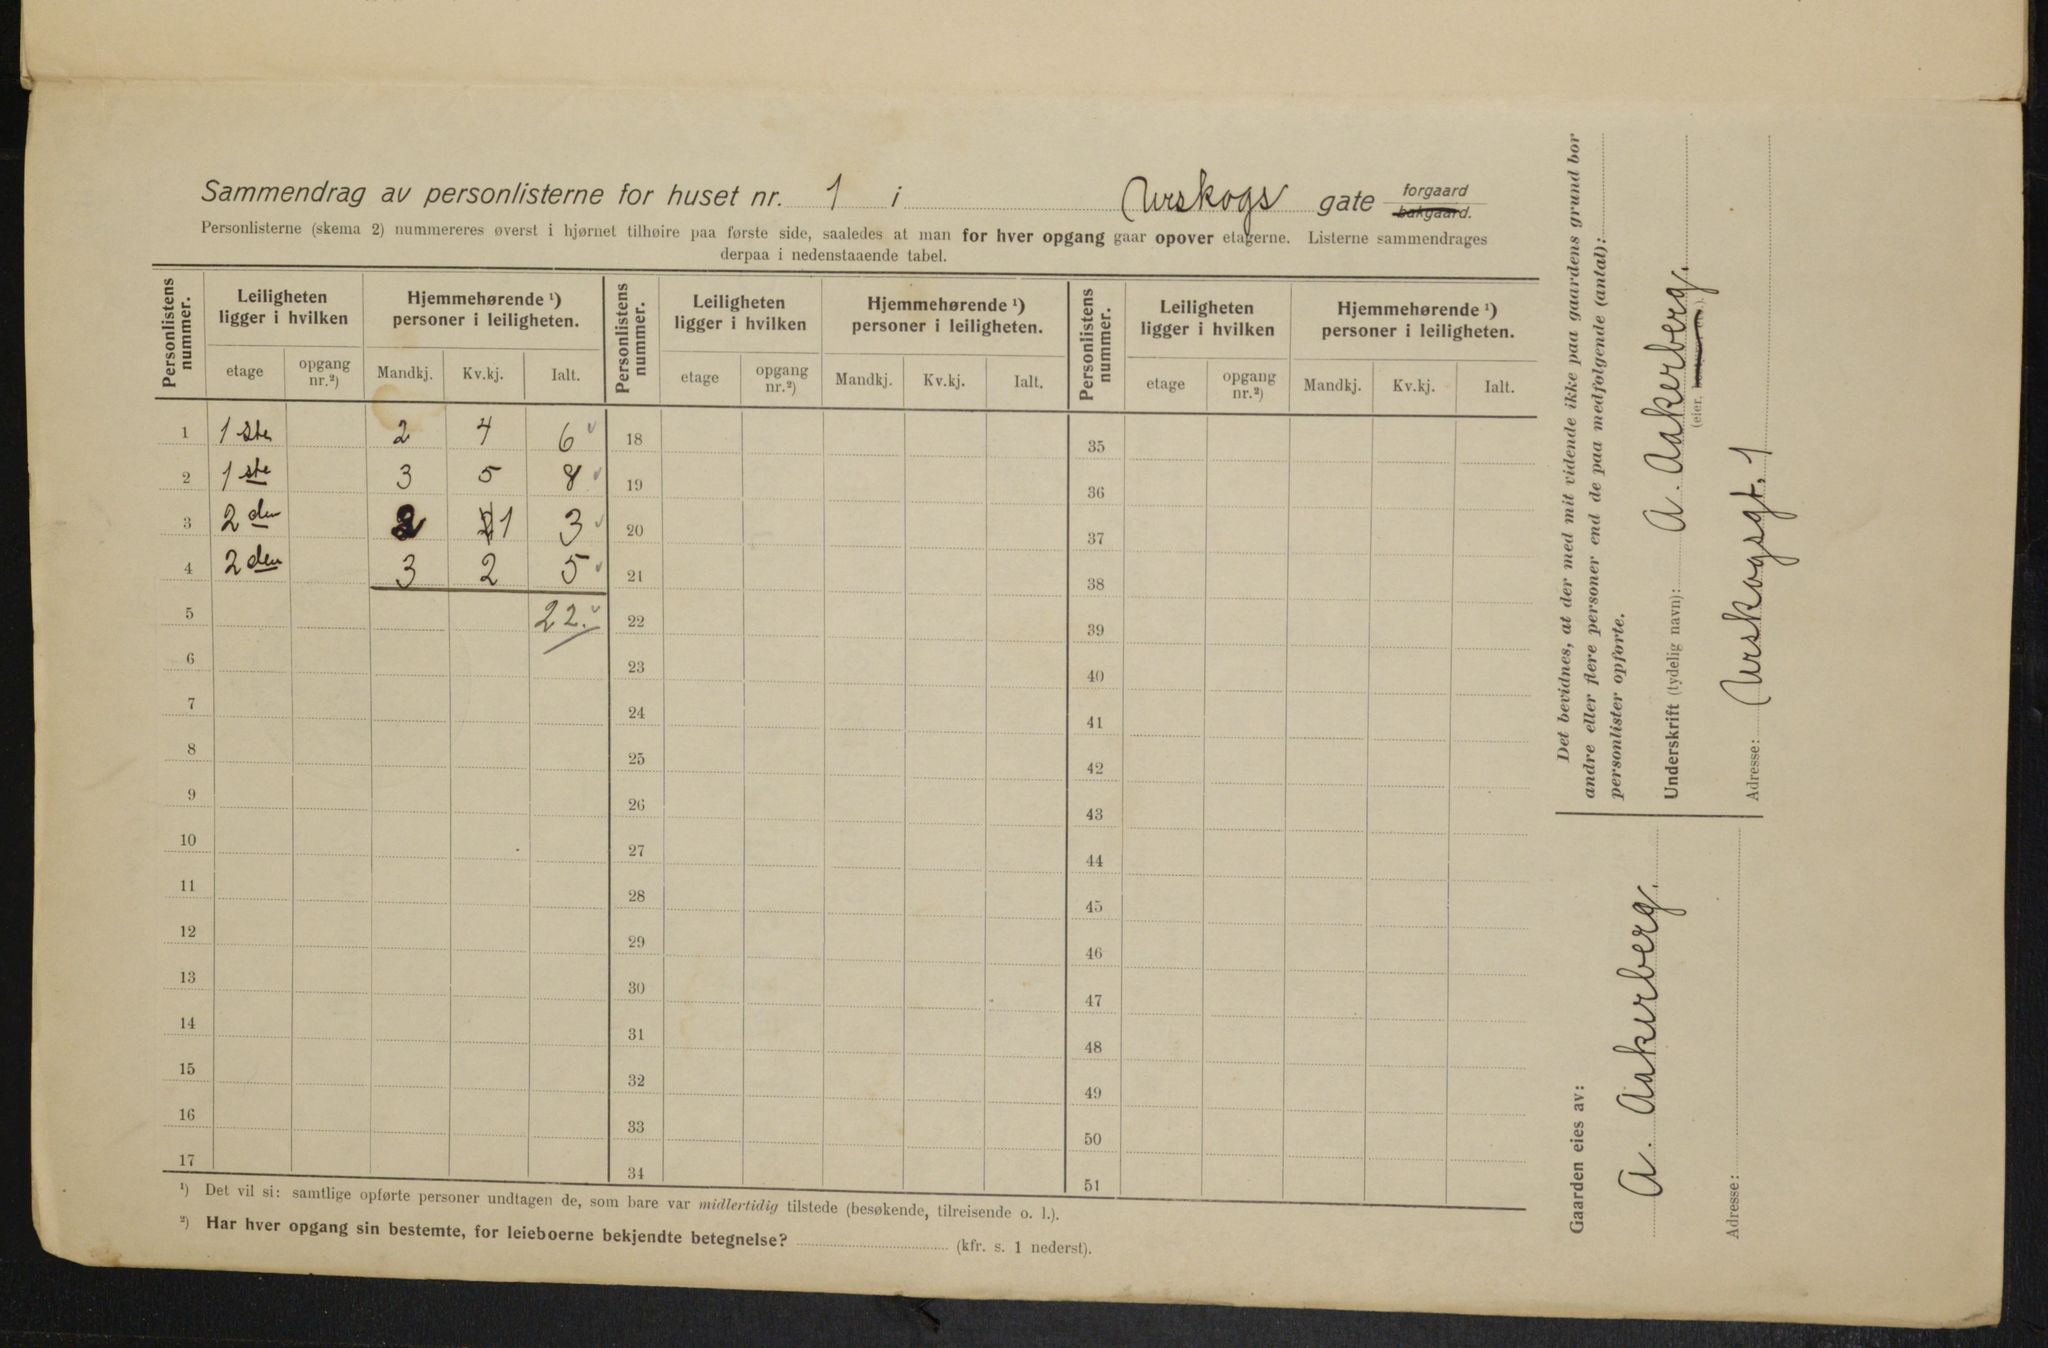 Sammendrag av personlisterne for huset nr. 1 i Urskogs gate forgaard bakgaard.
Personlisterne (skema 2) nummereres øverst i hjørnet tilhøire paa første side, saaledes at man for hver opgang gaar opover etagerne. Listerne sammendrages
derpaa i nedenstaaende tabel.
Personlistens nummer. Leiligheten ligger i hvilken Hjemmehørende ¹) personer i leiligheten. Personlistens nummer. Leiligheten ligger i hvilken Hjemmehørende ¹) personer i leiligheten. Personlistens nummer. Leiligheten ligger i hvilken Hjemmehørende ¹) personer i leiligheten.
etage opgang nr.²) Mandkj. Kv.kj. Ialt. etage opgang nr.²) Mandkj. Kv.kj. Ialt. etage opgang nr.²) Mandkj. Kv.kj. Ialt.
1 1 ste 2 4 6 18 35
2 1 ste 3 5 8 19 36
3 2 den 2 1 3 20 37
4 2 den 3 2 5 21 38
5 22. 22 39
6 23 40
7 24 41
8 25 42
9 26 43
10 27 44
11 28 45
12 29 46
13 30 47
14 31 48
15 32 49
16 33 50
17 34 51
¹) Det vil si: samtlige opførte personer undtagen de, som bare var midlertidig tilstede (besøkende, tilreisende o. l.).
²) Har hver opgang sin bestemte, for leieboerne bekjendte betegnelse? (kfr. s. 1 nederst).
Det bevidnes, at der med mit vidende ikke paa gaardens grund bor
andre eller flere personer end de paa medfølgende (antal):
personlister opførte.
Underskrift (tydelig navn): A. Aakerberg.
(eier,
Adresse: Urskogsgt. 1
Gaarden eies av:
A. Aakerberg.
Adresse: